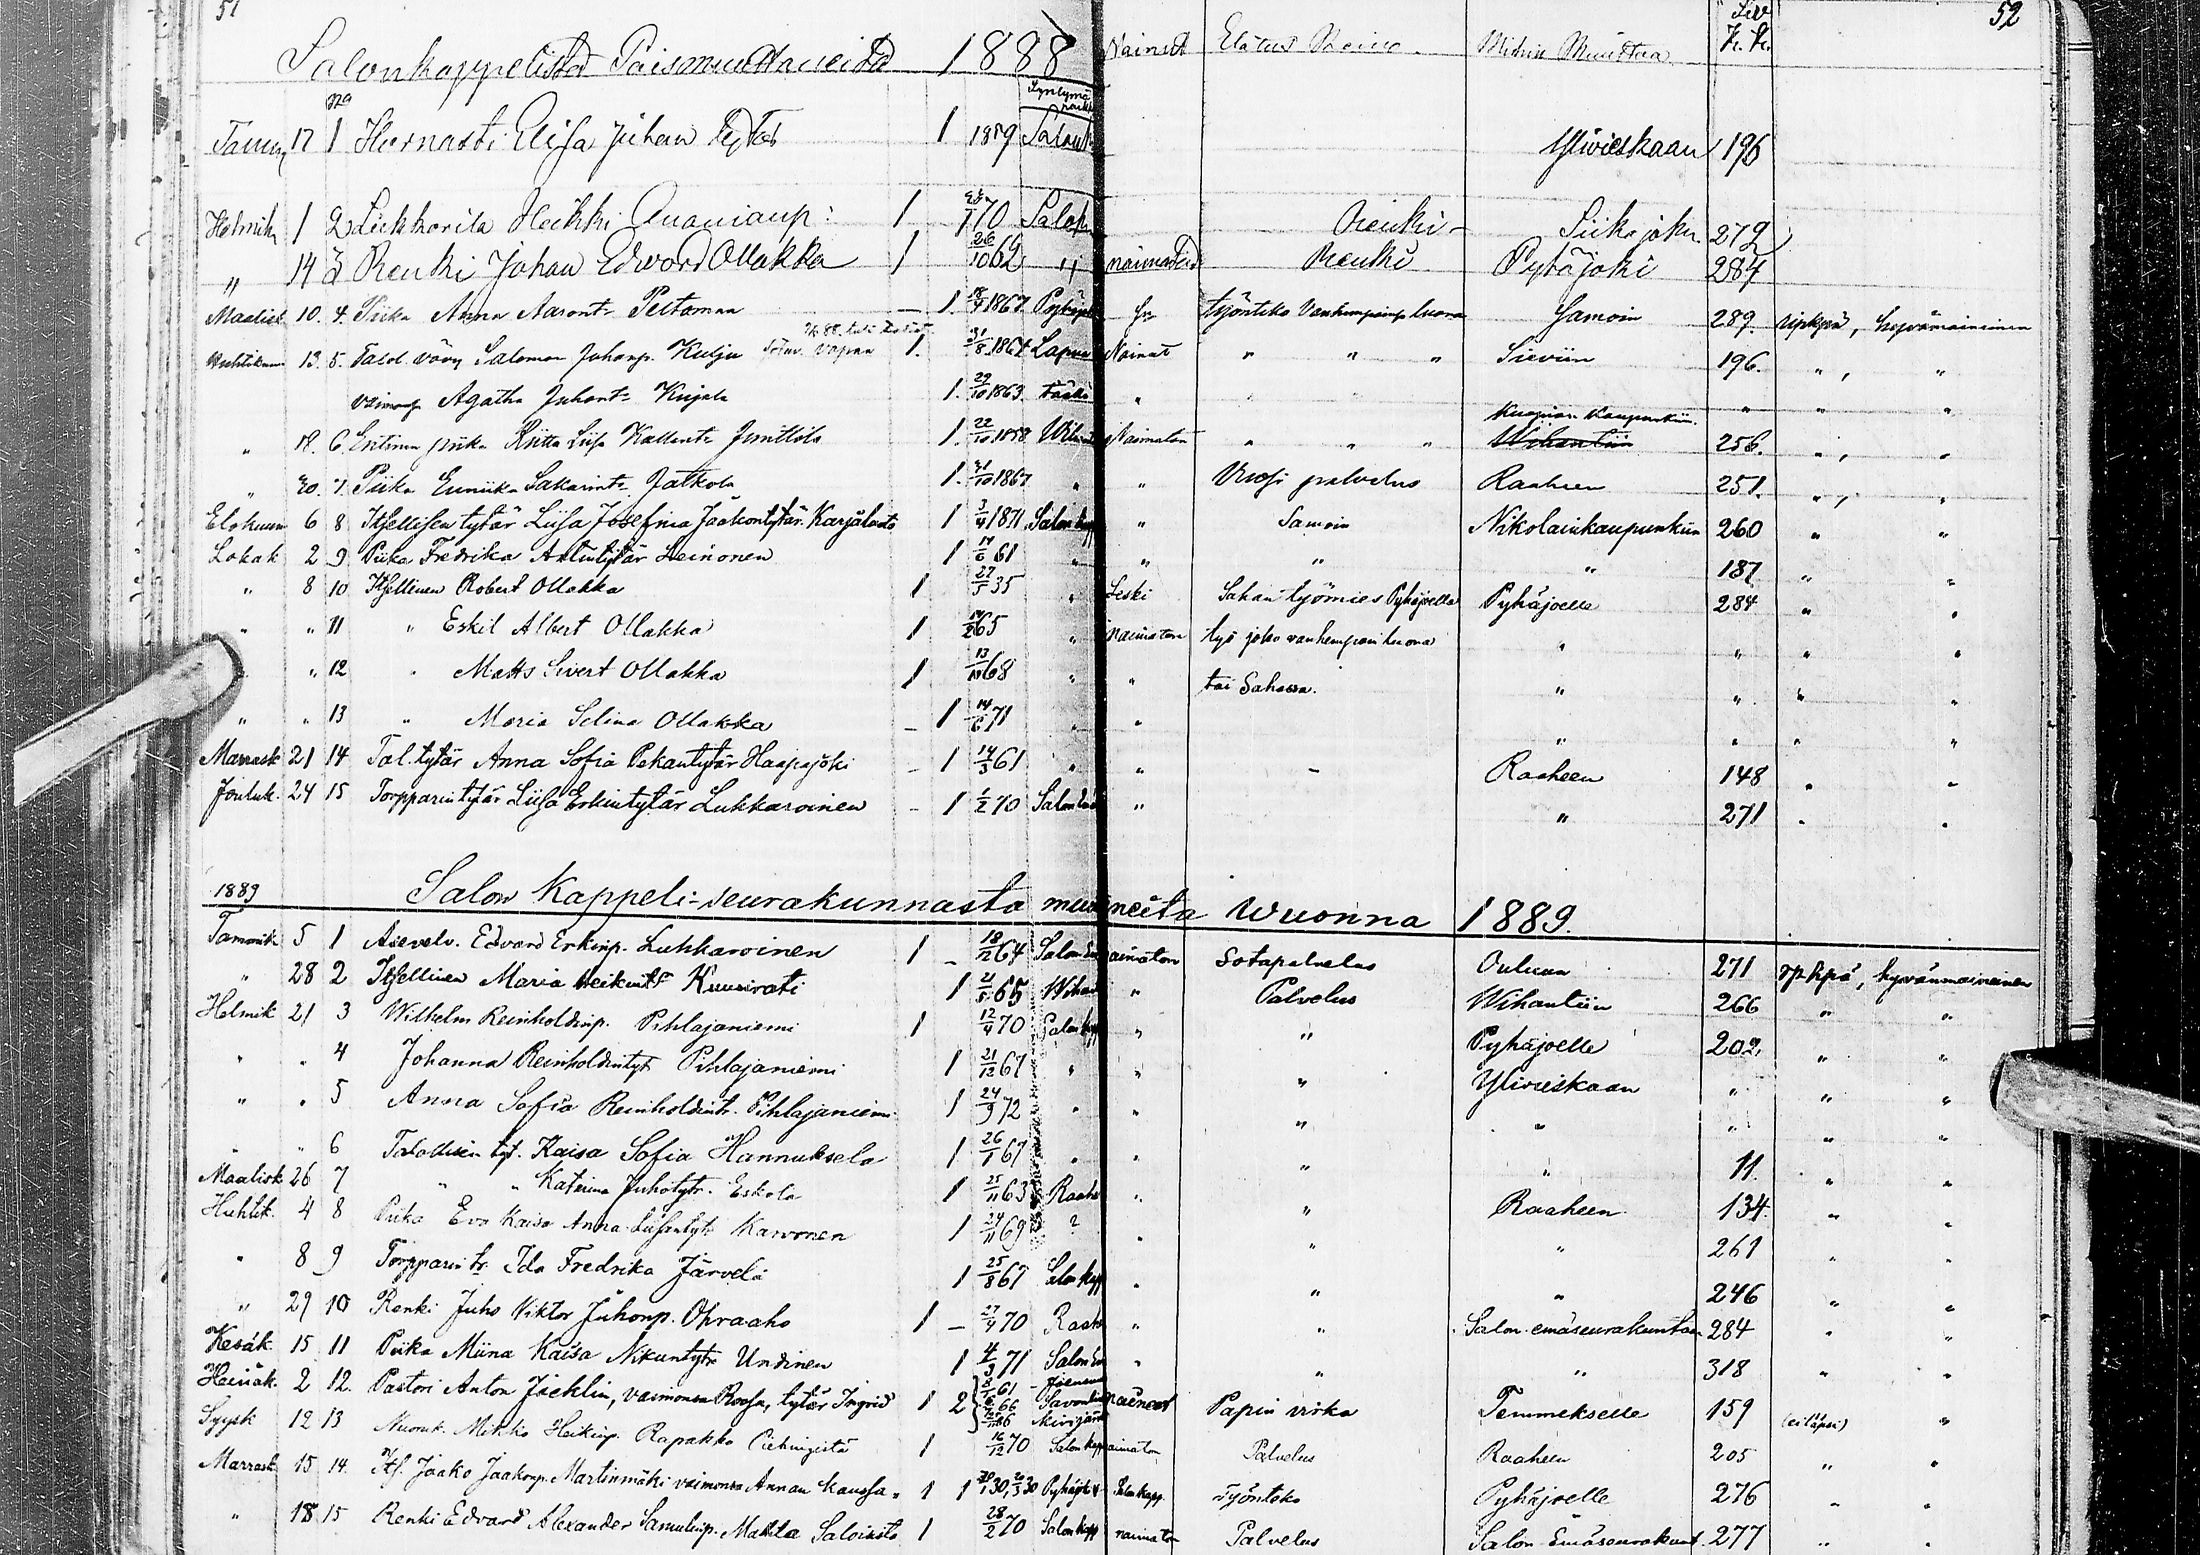 51 52
Salonkappelista Poismuuttaneita 1888 Naineet Elatus Keino Mihin Muuttaa Siv
No Syntymä paikka
Tammik 17 1 Hernasti Elisa Juhan tytär 1 1859 Ylivieskaan 196
Helmik 1 2 Heikki 1 70 Salok Renki Siikajoki 279
" 14 3 Renki Johan Edward Ollakka 1 26/10 62 " naimaton Renki Pyhäjoki 284
Maalisk 10. 4. Piika Anna Aaront. Peltomaa — 1. 18/4 1867 Työnteko Vanhempainsa luona Samoin 289. ripkynä, hyvämaineinen
Huhtikuu 13. 5. Talol. vävy Salomon Juhonp. Kulju 1. 31/8 1864 Lapua Nainut " " " Sieviin 196. " , "
vaimonsa Agatha Juhont. Kujala 1. 29/10 1863. täällä " " " "
" 18. 6. Entinen piika Riitta Liisa Kallent. Junttila 1. 22/10 1858 Naimaton " " " Kuopion Kaupunkiin. Wihantiin 256. " , "
" 20. 7. Piika Eunika Sakarint. Jatkola 1. 31/10 1867 " " Vuosi palvelus Raaheen 251. " , "
Elokuun 6 8 Itsellisen tytär Liisa Josefina Jaakontytär Karjaluoto 1 3/4 1871 Salon kapp " Samoin Nikolainkaupunkiin 260 " "
Lokak 2 9 Piika Fredrika Antintytär Leinonen 1 14/6 61 " " " " 187 " "
" 8 10 Itsellinen Robert Ollakka 1 27/5 35 " Leski Sahan työmies Pyhäjoella Pyhäjoelle 284 " "
" " 11 " Eskil Albert Ollakka 1 14/2 65 " naimaton työ joko vanhempain luona " " " "
" " 12 " Matts Sivert Ollakka 1 13/10 68 " " tai Sahassa. " " " "
" " 13 " Maria Selina Ollakka — 1 14/6 71 " " " " " "
Marrask 21 14 Tal. tytär Anna Sofia Pekantytär Haapajoki — 1 14/3 61 " " — Raaheen 148 " "
Jouluk. 24 15 Torpparin tytär Liisa Erkintytär Lukkaroinen — 1 1/2 70 " " 271 " "
1889 Salon Kappeli-seurakunnasta muuttaneita Wuonna 1889.
Tammik 5 1 Asevelv. Edvard Erkinp. Lukkaroinen 1 — 18/12 64 naimaton Sotapalvelus Ouluun 271 rpkpä, hyvänmaineinen
" 28 2 Itsellinen Maria Heikint. Kuusirati 1 65 Wihan " Palvelus Wihantiin 266 " "
Helmik 21 3 Wilhelm Reinholdinp. Pihlajaniemi 1 12/4 70 Salon kapp " " Pyhäjoelle 202. " "
" " 4 Johanna Reinholdintyt Pihlajaniemi 1 21/12 67 " " " Ylivieskaan " " "
" " 5 Anna Sofia Reinholdint. Pihlajaniemi 1 24/9 72 " " " " " " "
" " 6 Talollisen tyt. Kaisa Sofia Hannuksela 1 26/1 67 " " " " 11. " "
Maalisk 26 7 " " Katerina Juhotytr. Eskola 1 25/11 63 Raahe " " Raaheen 134. " "
Huhtik. 4 8 Piika Eva Kaisa Anna-Liisantyt Karvonen 1 24/11 69 ? " " " 261 " "
" 8 9 Torpparin tr. Ida Fredrika Järvelä 1 25/8 67 Salon kapp " " " 246 " "
" 29 10 Renki Juho Viktor Juhonp. Ohraaho 1 — 27/9 70 Raahe " " Salon emäseurakuntaan 284 " "
Kesäk 15 11 Piika Miina Kaisa Nikuntytr Undinen 1 4/3 71 " " " 318 " "
Heinäk. 2 12. Pastori Anton Jäcklin, vaimonsa Roosa, tytär Ingrid 1 2 61 66 86 Kivijärvi naineet Papin virka Temmekselle 159 (ei läpsi) "
Syysk 12 13 Nuoruk. Mikko Heikinp. Rapakko Piehingistä 1 16/12 70 Salon kapp naimaton Palvelus Raaheen 205 " "
Marrask 15 14. Its. Jaako Jaakonp. Martinmäki vaimonsa Annan kanssa " 1 1 30, 30 Salon kapp. Työnteko Pyhäjoelle 276 " "
" 18 15 Renki Edvard Alexander Samulinp. Mattila Saloisista 1 28/2 70 Salon kapp naimaton Palvelus Salon Emäseurakunt. 277 " "